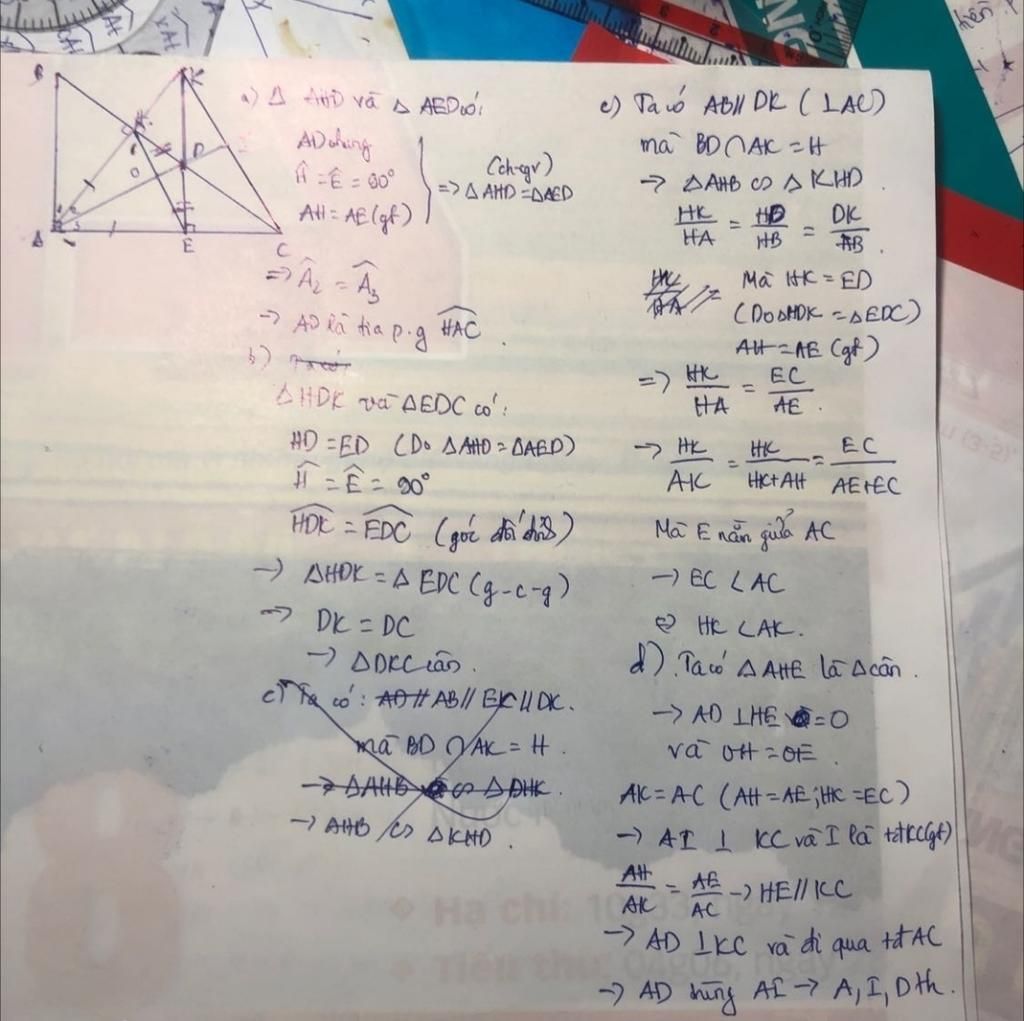 B
K
H
I
O
D
A
E
C
a) Δ AHD và Δ AED có:
AD chung
Ĥ = Ê = 90°
AH = AE (gt)
(ch-cgv)
=> Δ AHD = Δ AED
=> Â₂ = Â₃
-> AD là tia p.g HAC.
b) Ta có:
Δ HDK và Δ EDC có:
HD = ED (Do Δ AHD = Δ AED)
Ĥ = Ê = 90°
HDK = EDC (góc đối đỉnh)
-> Δ HDK = Δ EDC (g-c-g)
-> DK = DC
-> Δ DKC cân.
c) Ta có: AD // AB // EK // DK.
mà BD ∩ AK = H.
-> Δ AHB ∽ Δ DHK.
-> AHB ∽ Δ KHD.
c) Ta có AB // DK (⊥ AC)
mà BD ∩ AK = H
-> Δ AHB ∽ Δ KHD.
HK/HA = HD/HB = DK/AB.
HK/HA = Mà HK = ED
(Do Δ HDK = Δ EDC)
AH = AE (gt)
=> HK/HA = EC/AE.
-> HK/AK = HK/HK+AH = EC/AE+EC
Mà E nằm giữa AC
-> EC < AC
⇔ HK < AK.
d) Ta có Δ AHE là Δ cân.
-> AD ⊥ HE = O
và OH = OE.
AK = AC (AH = AE; HK = EC)
-> AI ⊥ KC và I là tđ KC (gt)
AH/AK = AE/AC -> HE // KC
-> AD ⊥ KC và đi qua tđ AC
-> AD trùng AI -> A, I, D th.
Hạ chí: 10
Tiểu thử: 04g06, ngày